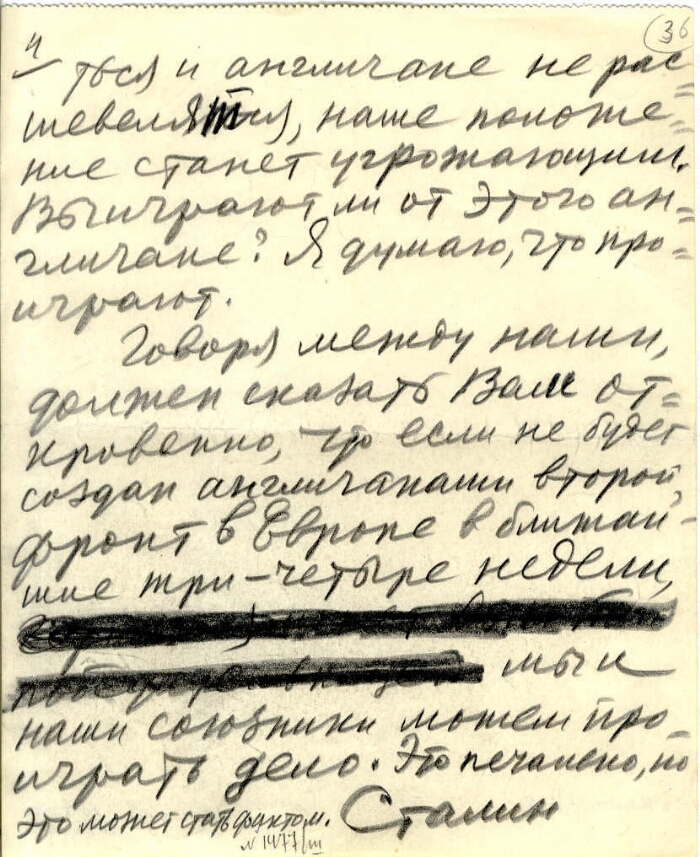 4
36
ться и англичане не рас=
шевелятся, наше положе=
ние станет угрожающим.
Выиграют ли от этого ан=
гличане? Я думаю, что про=
играют.
Говоря между нами,
должен сказать Вам от=
кровенно, что если не будет
создан англичанами второй
фронт в Европе в ближай-
шие три-четыре недели,
мы и
наши союзники можем про-
играть дело. Это печально, но
это может стать фактом. Сталин
N 1477/III